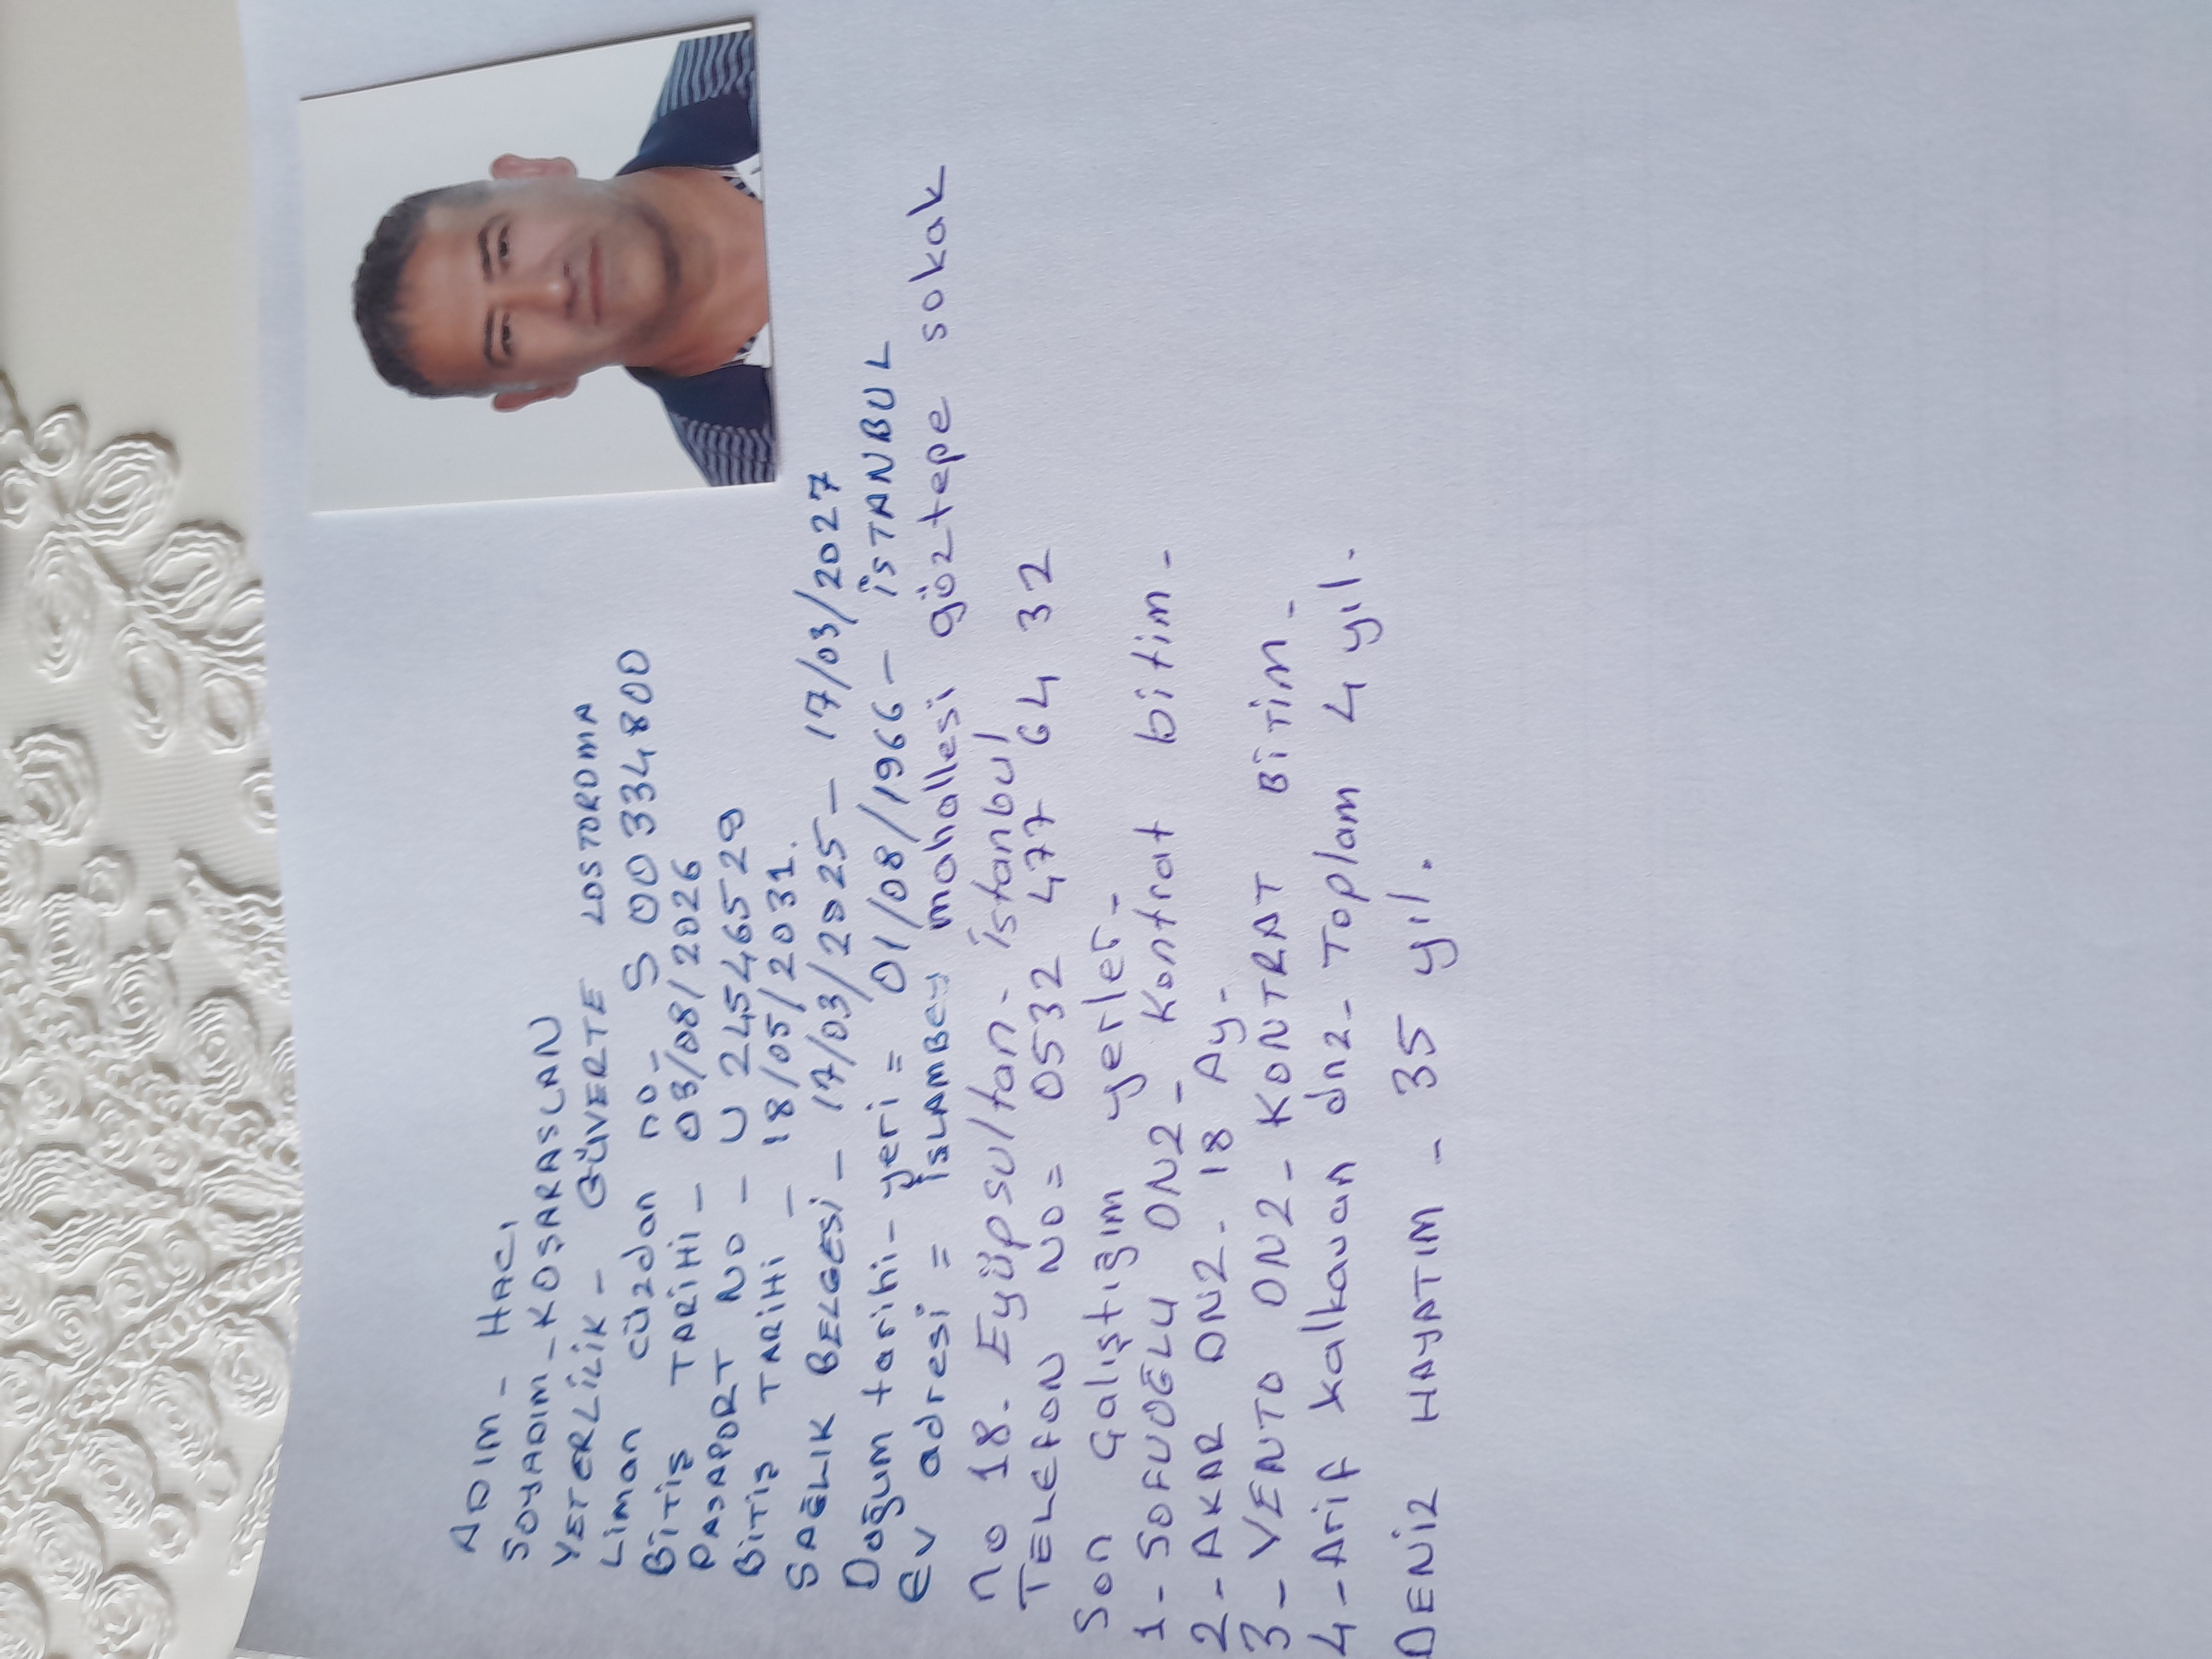 ADIM - HACI
SOYADIM - KOŞARASLAN
YETERLİLİK - GÜVERTE LOSTOROMA
Liman cüzdan no - S 00334800
BİTİŞ TARİHİ - 03/08/2026
PASAPORT NO - U 24546529
BİTİŞ TARİHİ - 18/05/2031.
SAĞLIK BELGESİ - 17/03/2025 - 17/03/2027
Doğum tarihi - yeri = 01/08/1966 - İSTANBUL
Ev adresi = İSLAMBEY mahallesi göztepe sokak
no 18. Eyüpsultan. istanbul
TELEFON NO = 0532 477 64 32
Son Çalıştığım yerler -
1 - SOFUOĞLU DNZ - Kontrat bitim -
2 - AKAR DNZ. 18 Ay -
3 - VENTO DNZ - KONTRAT BİTİM -
4 - Arif kalkavan dnz - Toplam 4 yıl.
DENİZ HAYATIM - 35 yıl.